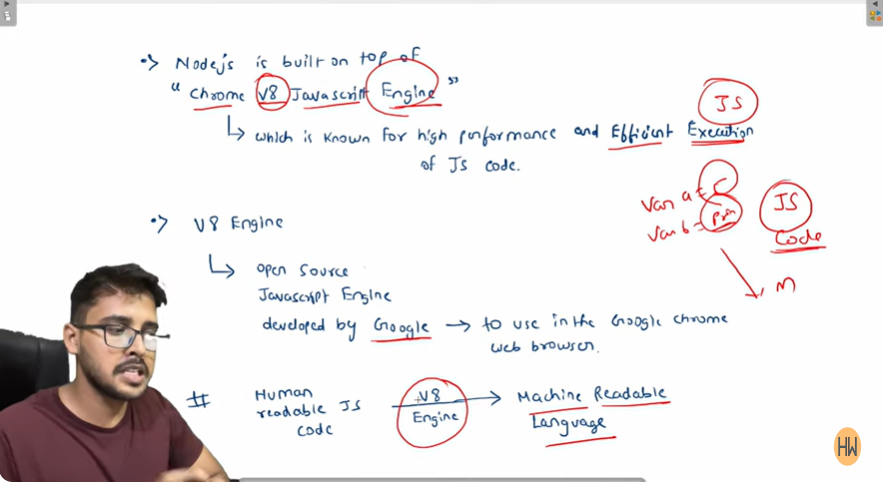 •> Nodejs is built on top of
" Chrome V8 Javascript Engine "
which is known for high performance and Efficient Execution
of JS code.
JS
Var a =
Var b =
JS
Code
m
•> V8 Engine
open source
Javascript Engine
developed by Google → to use in the Google chrome
web browser.
# Human
readable JS
code
V8
Engine
Machine Readable
Language
HW